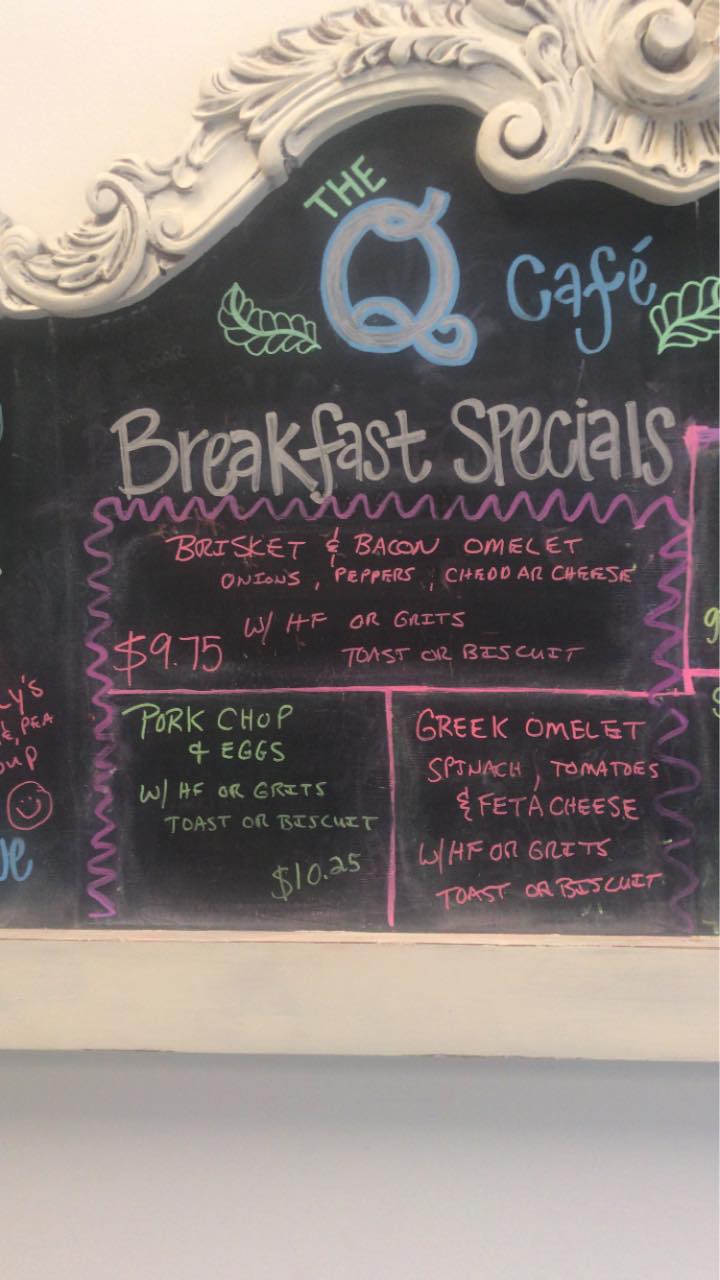 THE
Q Café
Breakfast Specials
BRISKET & BACON OMELET
ONIONS, PEPPERS, CHEDDAR CHEESE
W/ HF OR GRITS
$9.75
TOAST OR BISCUIT
PORK CHOP
& EGGS
W/ HF OR GRITS
TOAST OR BISCUIT
$10.25
GREEK OMELET
SPINACH, TOMATOES
& FETA CHEESE
W/ HF OR GRITS
TOAST OR BISCUIT
PEA